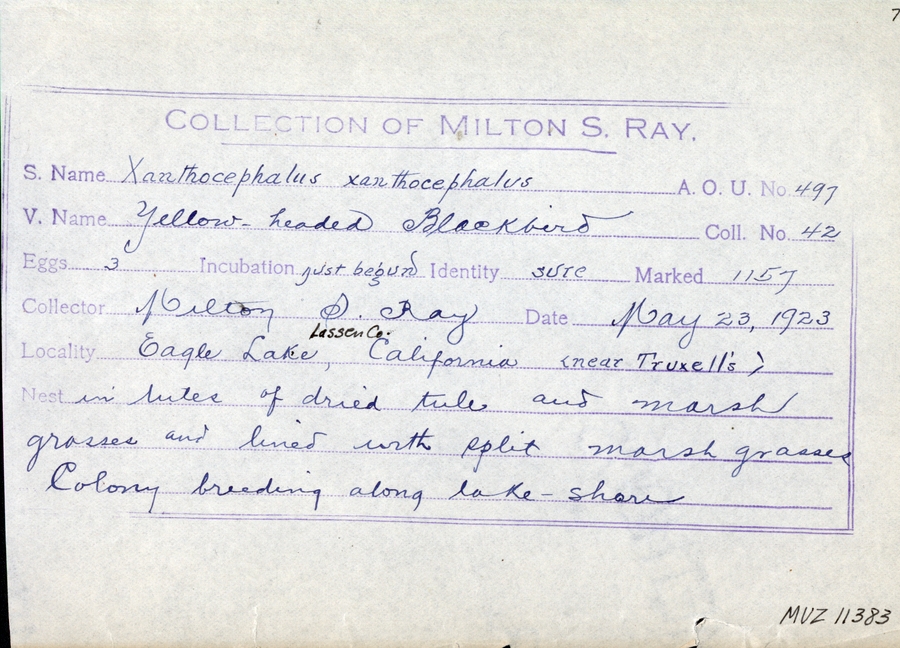 7
COLLECTION OF MILTON S. RAY.
S. Name Xanthocephalus xanthocephalus A. O. U. No. 497
V. Name Yellow-headed Blackbird Coll. No. 42
Eggs 3 Incubation just begun Identity sure Marked 1157
Collector Milton S. Ray Date May 23, 1923
Lassen Co.
Locality Eagle Lake, California (near Truxell's)
Nest in tules of dried tule and marsh
grasses and lined with split marsh grasses
Colony breeding along lake-shore
MUZ 11383